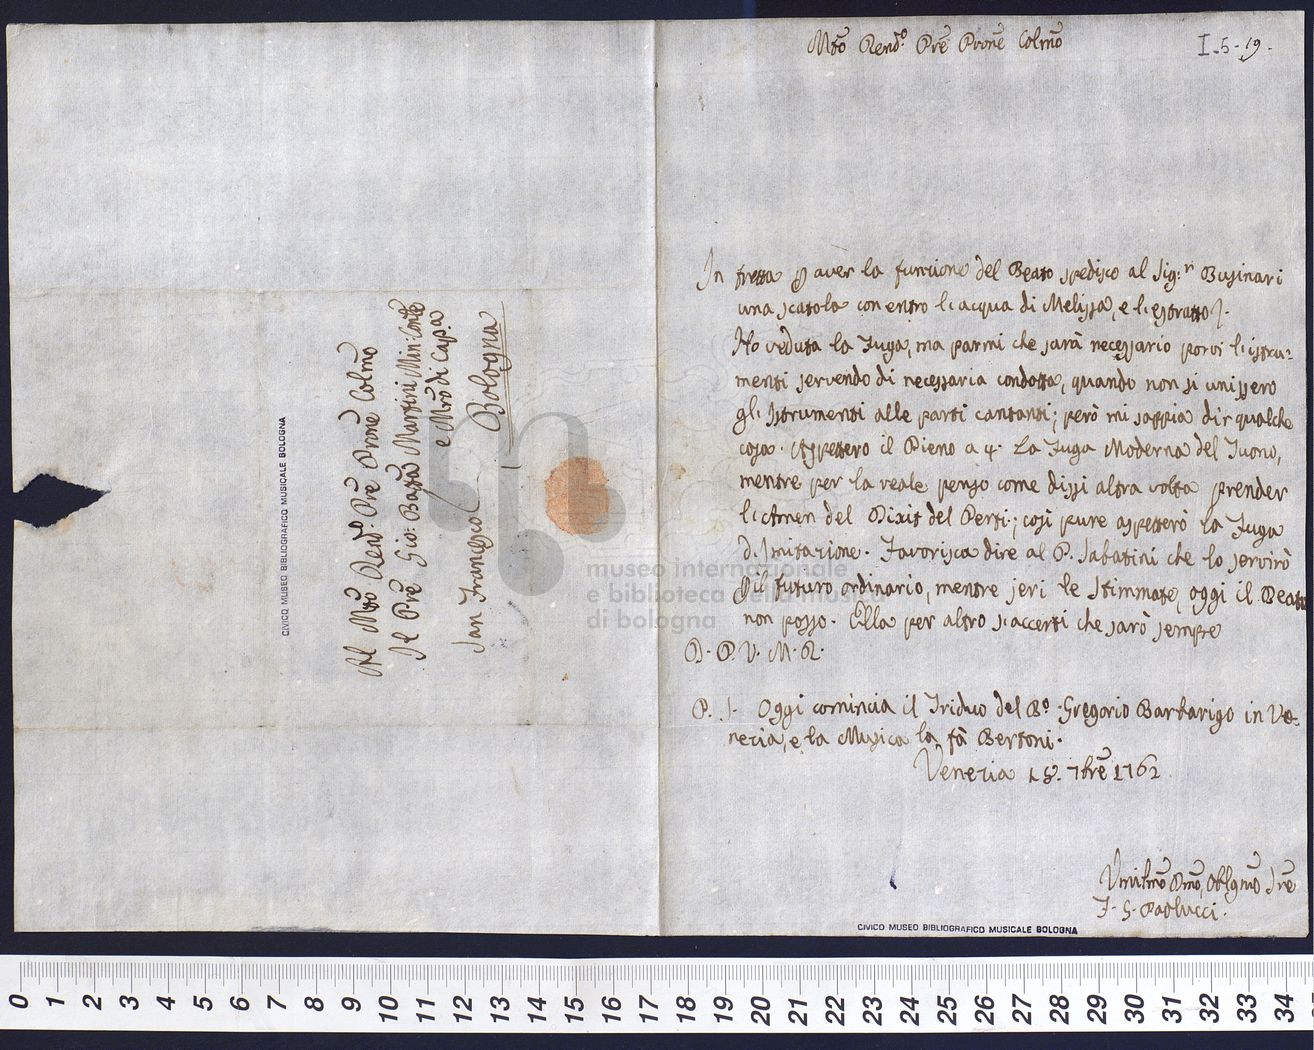 Mto Rendo. Pre Prone Colmo
I-5-19.
In fretta p aver la funzione del Beato spedisco al Sig:r Businari
una scatola con entro l'acqua di Melissa, e l'estratto J.
Ho veduta la Fuga, ma parmi che sarà necessario porvi l'istru-
menti servendo di necessaria condotta, quando non si unissero
gl'Istrumenti alle parti cantanti; però mi sappia dir qualche
cosa. Aspettero il Pieno a 4. La Fuga Moderna del Tuono,
mentre per la reale penso come dissi altra volta prender
l'Amen del Dixit del Perti; così pure aspetterò la Fuga
d'Imitazione. Favorisca dire al P. Sabatini che lo servirò
p il futuro ordinario, mentre jeri le Stimmate, oggi il Beato
non posso. Ella per altro s'accerti che sarò sempre
D. P. V. M. R.
P. S. Oggi comincia il Triduo del Bo. Gregorio Barbarigo in Ve-
nezia, e la Musica la fà Bertoni.
Venezia 18. 7bre 1762
Umilmo Dmo, Oblgmo Sre
F. G. Paolucci.
Al Mto Rendo. Pre Prone Colmo
Il Pre Gio: Batta Martini Min: Conle
e Mro di Cap.a
San Francesco Bologna
CIVICO MUSEO BIBLIOGRAFICO MUSICALE BOLOGNA
CIVICO MUSEO BIBLIOGRAFICO MUSICALE BOLOGNA
museo internazionale
e biblioteca della musica
di bologna
0 1 2 3 4 5 6 7 8 9 10 11 12 13 14 15 16 17 18 19 20 21 22 23 24 25 26 27 28 29 30 31 32 33 34